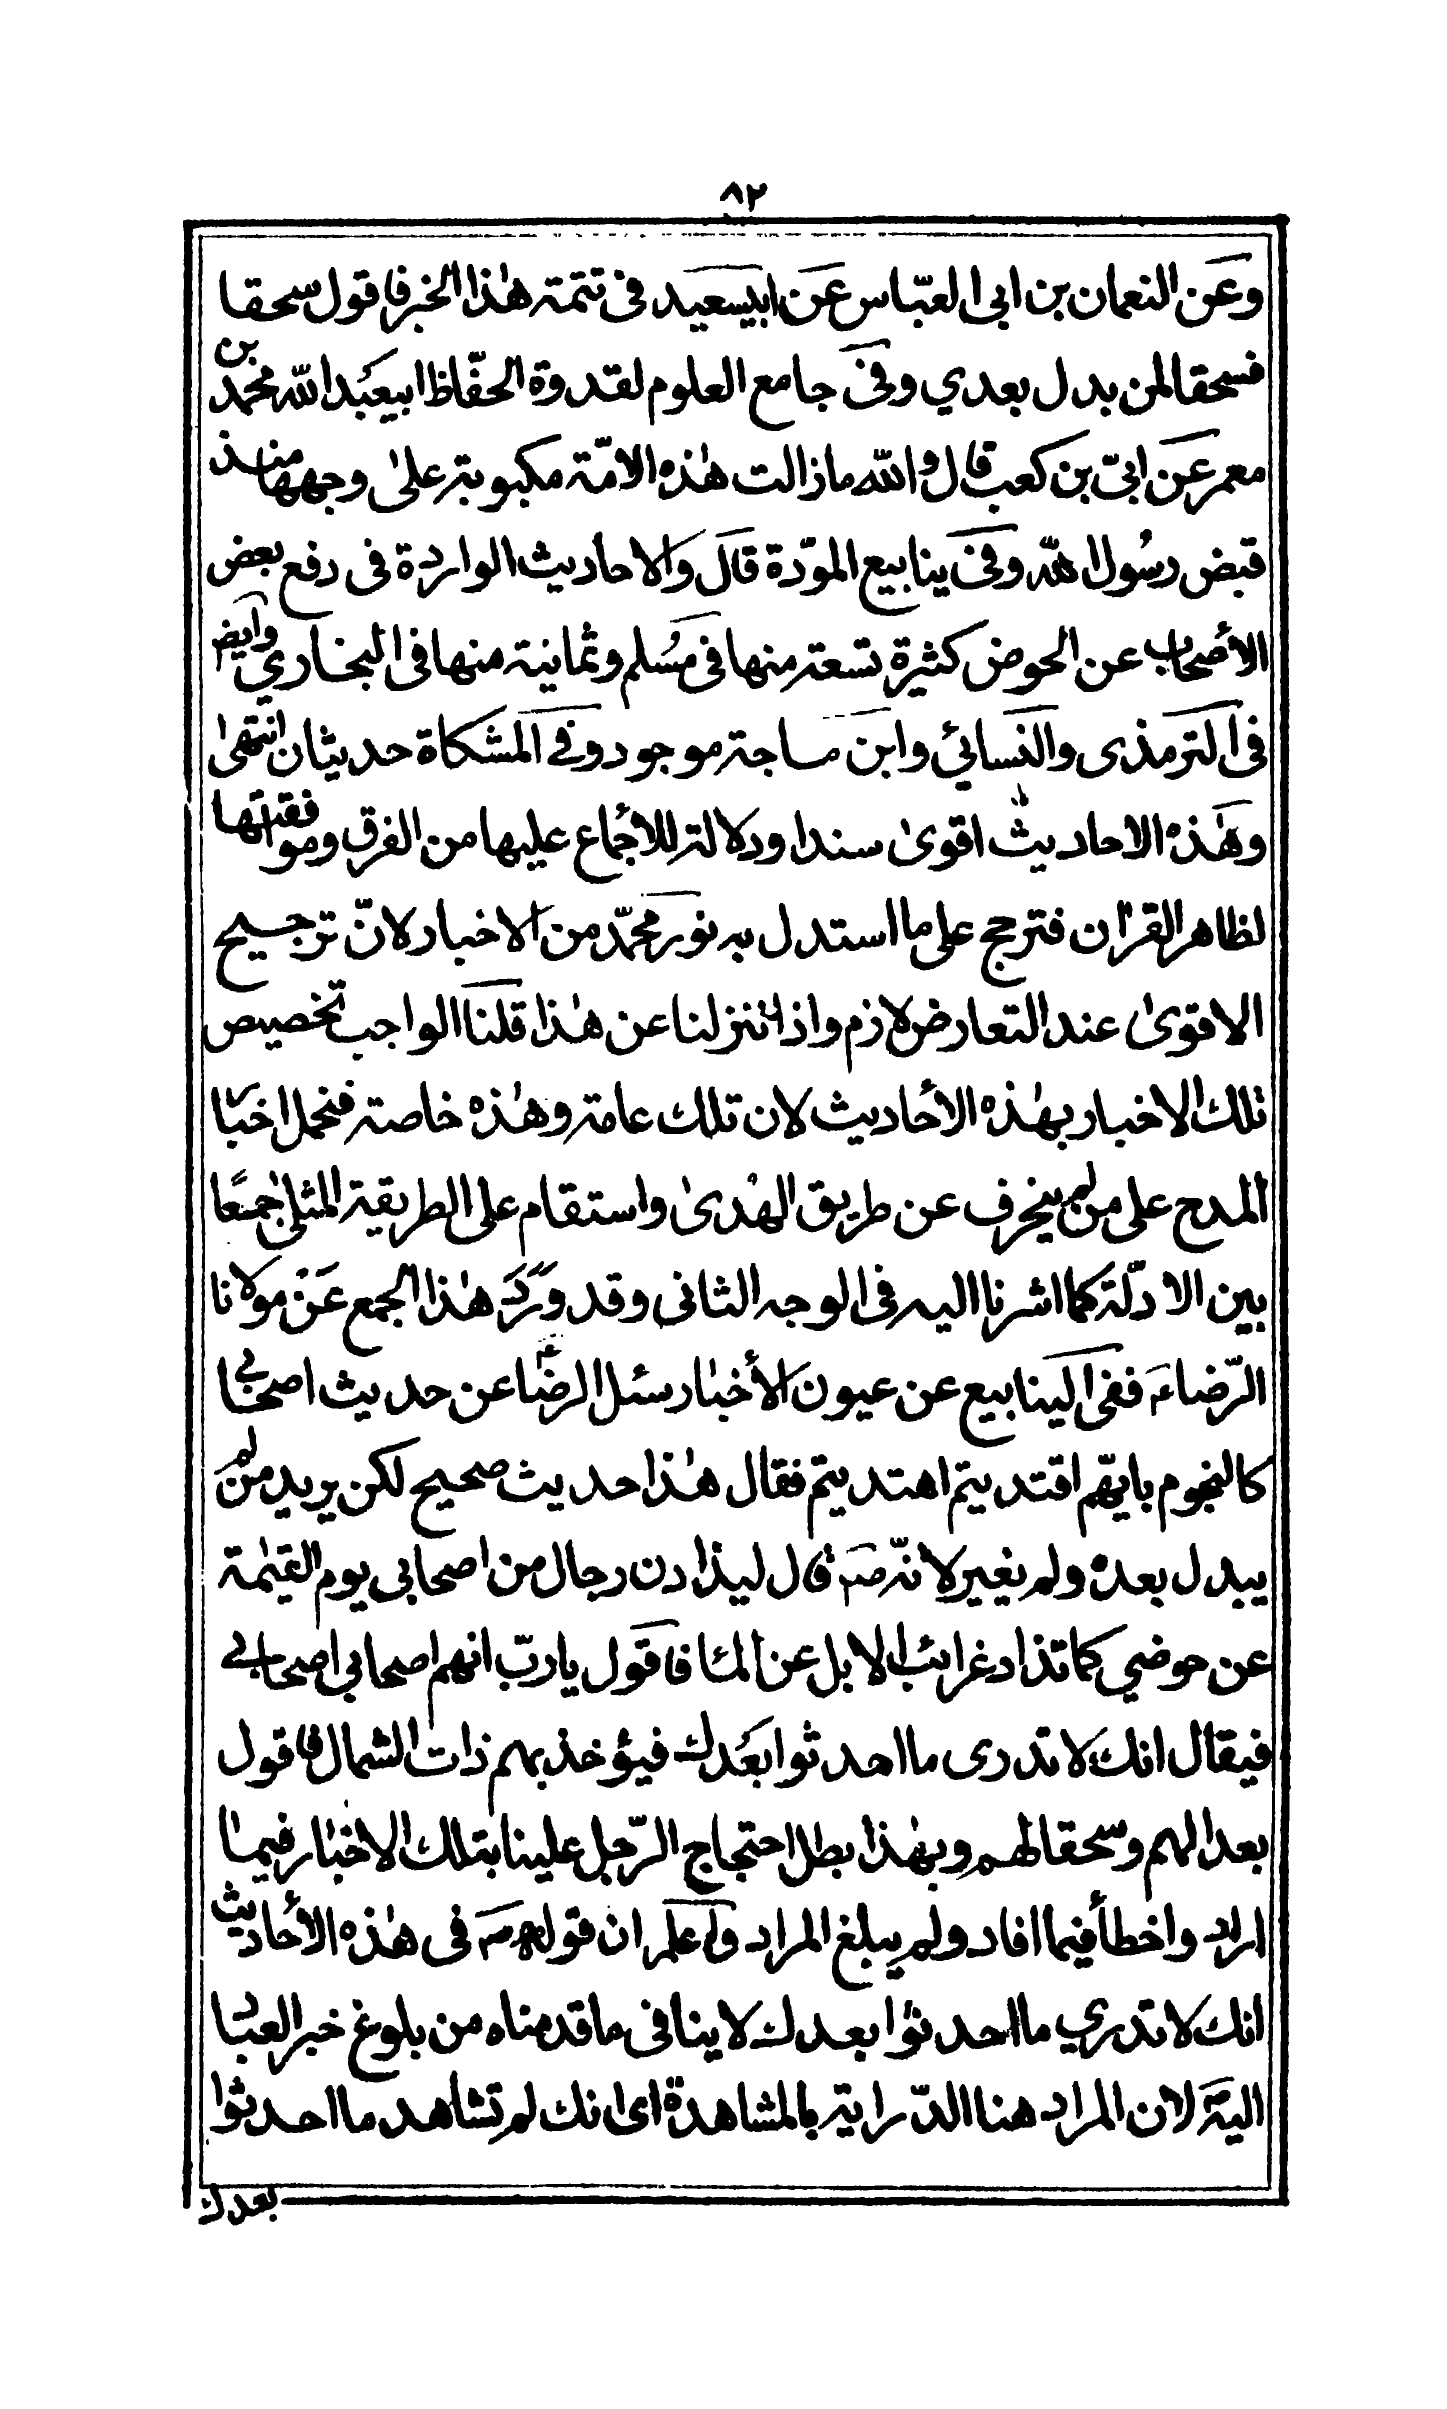 ٨٢
وعن النعمان بن ابى العبّاس عن ابيسعيد فى تتمة هٰذا الخبر فاقول سحقا
فسحقا لمن بدل بعدي وفى جامع العلوم لقدوة الحفّاظ ابيعبد الله محمد بن
معمر عن ابىّ بن كعب قال والله مازالت هٰذه الامّة مكبوبة علىٰ وجهها منذ
قبض رسول الله وفى ينابيع المودّة قال والاحاديث الواردة فى دفع بعض
الأصحاب عن الحوض كثيرة تسعة منها فى مسلم وثمانية منها فى البخاري وايضا
فى الترمذى والنسائي وابن ماجة موجود وفي المشكاة حديثان انتهىٰ
وهٰذه الاحاديث اقوىٰ سندا ودلالة للأجماع عليها من الفرق وموافقتها
لظاهر القراٰن فترجح على ما استدل به نور محمّد من الاخبار لانّ ترجيح
الاقوىٰ عند التعارض لازم واذا تنزلنا عن هٰذا قلنا الواجب تخصيص
تلك الاخبار بهٰذه الأحاديث لان تلك عامة وهٰذه خاصة فنحمل اخبار
المدح على من لم ينحرف عن طريق الهدىٰ واستقام على الطريقة المثلىٰ جمعًا
بين الادلّة كما اشرنا اليه فى الوجه الثانى وقد ورد هٰذا الجمع عن مولانا
الرّضاء ففى الينابيع عن عيون الأخبار سئل الرضا عن حديث اصحابي
كالنجوم بايّهم اقتديتم اهتديتم فقال هٰذا حديث صحيح لكن يريد من لم
يبدل بعده ولم يغير لانّه ص قال ليذادن رجال من اصحابى يوم القيٰمة
عن حوضي كما تذاد غرائب الابل عن الماء فاقول يا ربّ انهم اصحابي اصحابي
فيقال انك لا تدرى ما احدثوا بعدك فيؤخذ بهم ذات الشمال فاقول
بعدا لهم وسحقا لهم وبهٰذا بطل احتجاج الرّجل علينا بتلك الاخبار فيما
اراد واخطأ فيما افاد ولم يبلغ المراد ان قوله ص فى هٰذه الأحاديث
انك لا تدري ما احدثوا بعدك لا ينافى ما قدمناه من بلوغ خبر العباد
اليه لان المراد هنا الدّراية بالمشاهدة اى انك لم تشاهد ما احدثوا
بعدك